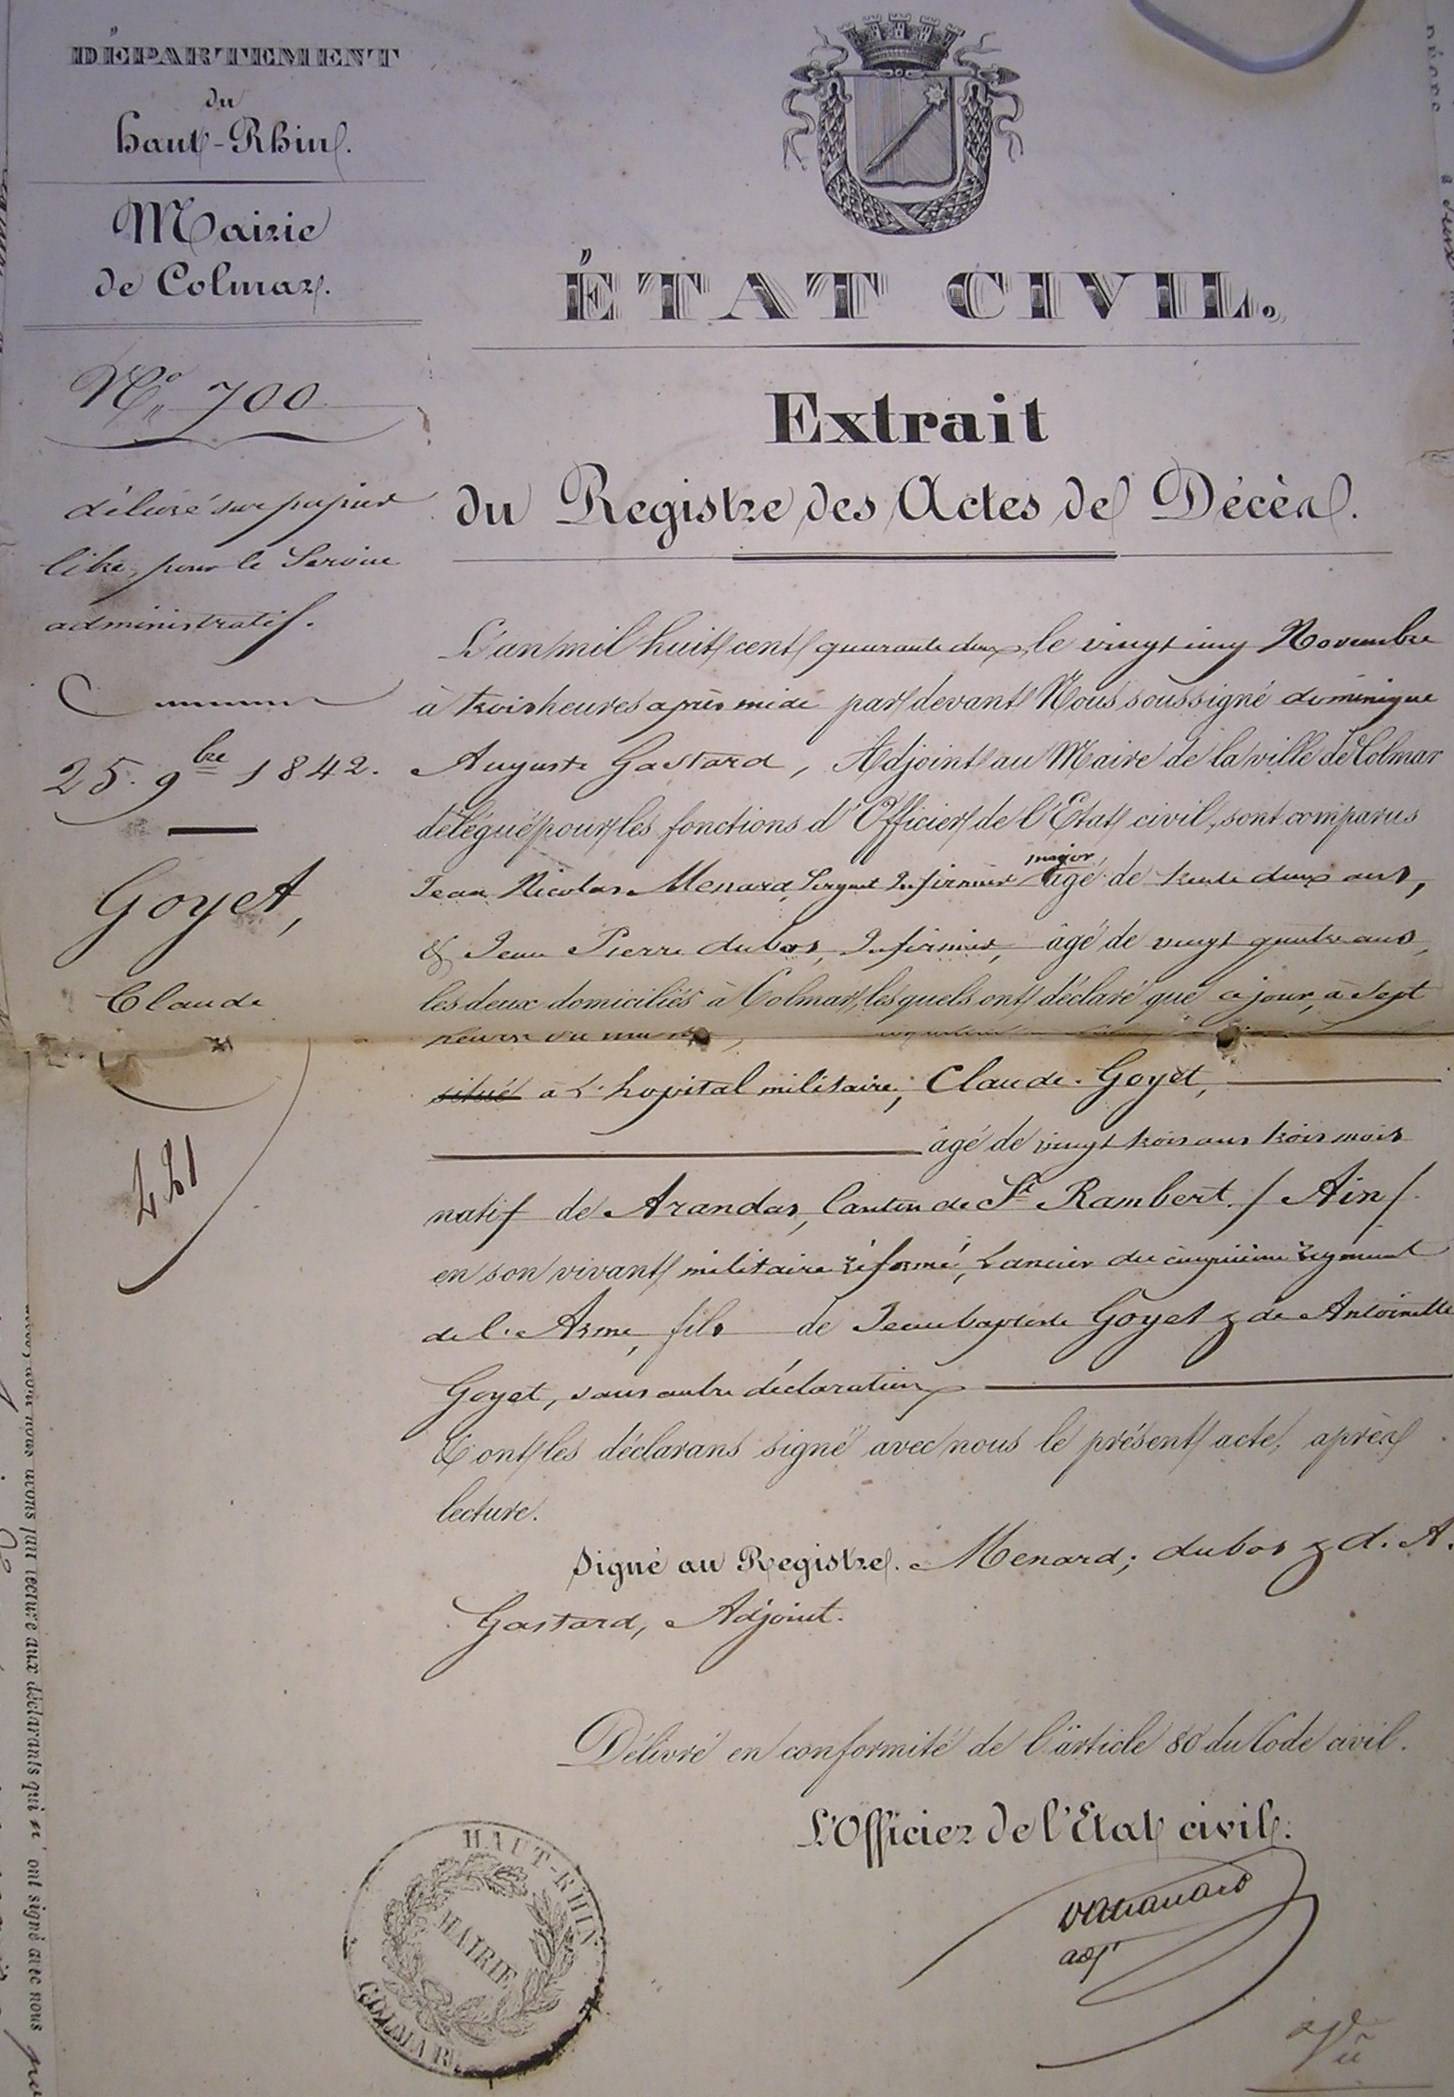 DÉPARTEMENT
du
Haut-Rhin.
Mairie
de Colmar.
N.º 700
délivré sur papier
libre, pour le Service
administratif.
25. 9bre 1842.
Goyet,
Claude
421
ÉTAT CIVIL.
Extrait
du Registre des Actes de Décès.
L'an mil huit cent quarante deux, le vingt cinq Novembre
à trois heures après midi par devant Nous soussigné dominique
Auguste Gastard, Adjoint au Maire de la ville de Colmar
délégué pour les fonctions d'Officier de l'État civil, sont comparus
Jean Nicolas Menard, Sergent Infirmier major, âgé de trente deux ans,
& Jean Pierre dubos, Infirmier, âgé de vingt quatre ans,
les deux domiciliés à Colmar, lesquels ont déclaré que ce jour, à Sept
heures du
situé à L'hopital militaire, Claude Goyet,
âgé de vingt trois ans trois mois
natif de Arandas, Canton de St Rambert / Ain /
en son vivant militaire réformé, Lancier du cinquième régiment
de l'Arme, fils de Jean baptiste Goyet & de Antoinette
Goyet, sans autre déclaration
Et ont les déclarans signé avec nous le présent acte, après
lecture.
Signé au Registre. Menard; dubos & d. A.
Gastard, Adjoint.
Délivré en conformité de l'article 80 du Code civil.
L'Officier de l'État civil.
adjt
HAUT-RHIN
MAIRIE
COLMAR
Vu
avons fait lecture aux déclarants qui ont signé avec nous